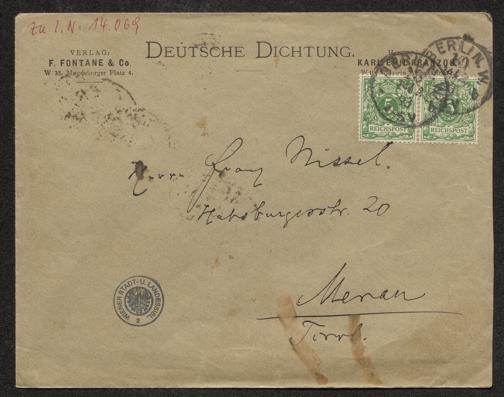 Zu I. N. 14.069
DEUTSCHE DICHTUNG.
VERLAG:
F. FONTANE & Co.
W 35, Magdeburger Platz 4.
KARL EMIL FRANZOS
BERLIN. W
5 5
REICHSPOST REICHSPOST
Herrn Franz Nissel.
Habsburgerstr. 20
WIENER STADT- U. LANDESBIBL.
Meran
Tirol.